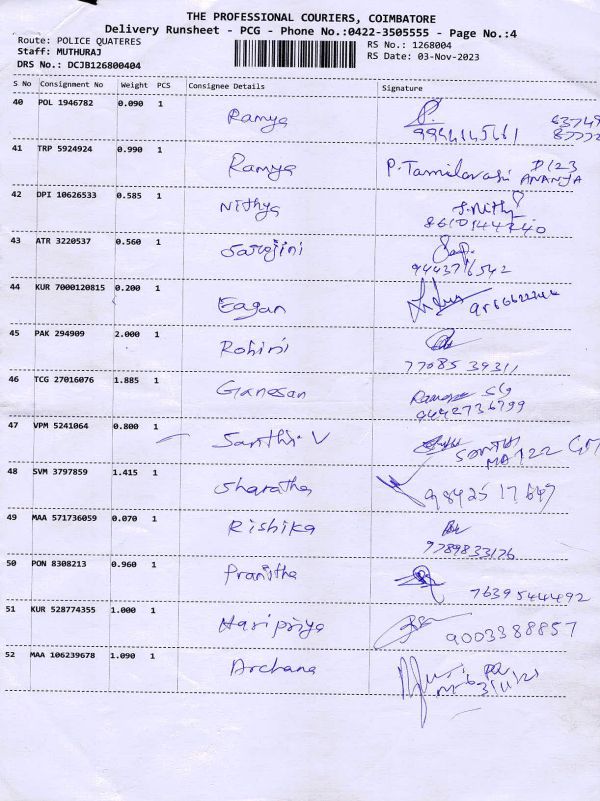 THE PROFESSIONAL COURIERS, COIMBATORE
Delivery Runsheet - PCG - Phone No.:0422-3505555 - Page No.:4
Route: POLICE QUATERES
RS No.: 1268004
Staff: MUTHURAJ
RS Date: 03-Nov-2023
DRS No.: DCJB126800404
S No Consignment No Weight PCS Consignee Details Signature
40 POL 1946782 0.090 1 Ramya
41 TRP 5924924 0.990 1 Ramya P.Tamilarasi D123
ANANYA
42 DPI 10626533 0.585 1 Nithya
43 ATR 3220537 0.560 1 Sarojini
9443716542
44 KUR 7000120815 0.200 1 Eagan
45 PAK 294909 2.000 1 Rohini
77085 39311
46 TCG 27016076 1.885 1 Ganesan
9442736799
47 VPM 5241064 0.800 1 Santhi V
MA 122
48 SVM 3797859 1.415 1 Sharatha
98425 17647
49 MAA 571736059 0.070 1 Rishika
9789833176
50 PON 8308213 0.960 1 Pranitha
7639544492
51 KUR 528774355 1.000 1 Haripriya
9003388857
52 MAA 106239678 1.090 1 Archana